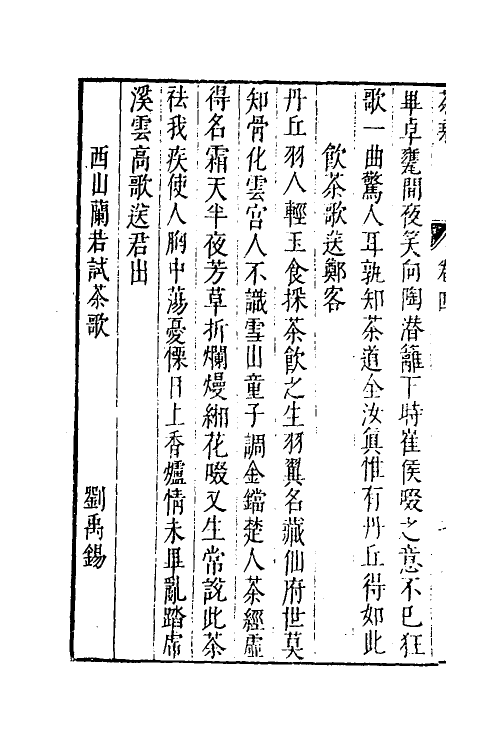 卷四
畢卓甕間夜笑向陶潛籬下時崔侯啜之意不已狂
歌一曲驚人耳孰知茶道全汝真惟有丹丘得如此
飲茶歌送鄭客
丹丘羽人輕玉食採茶飲之生羽翼名藏仙府世莫
知骨化雲宮人不識雪山童子調金鐺楚人茶經虛
得名霜天半夜芳草折爛熳緗花啜又生常說此茶
祛我疾使人胸中蕩憂慄日上香爐情未畢亂踏虎
溪雲高歌送君出
西山蘭若試茶歌 劉禹錫